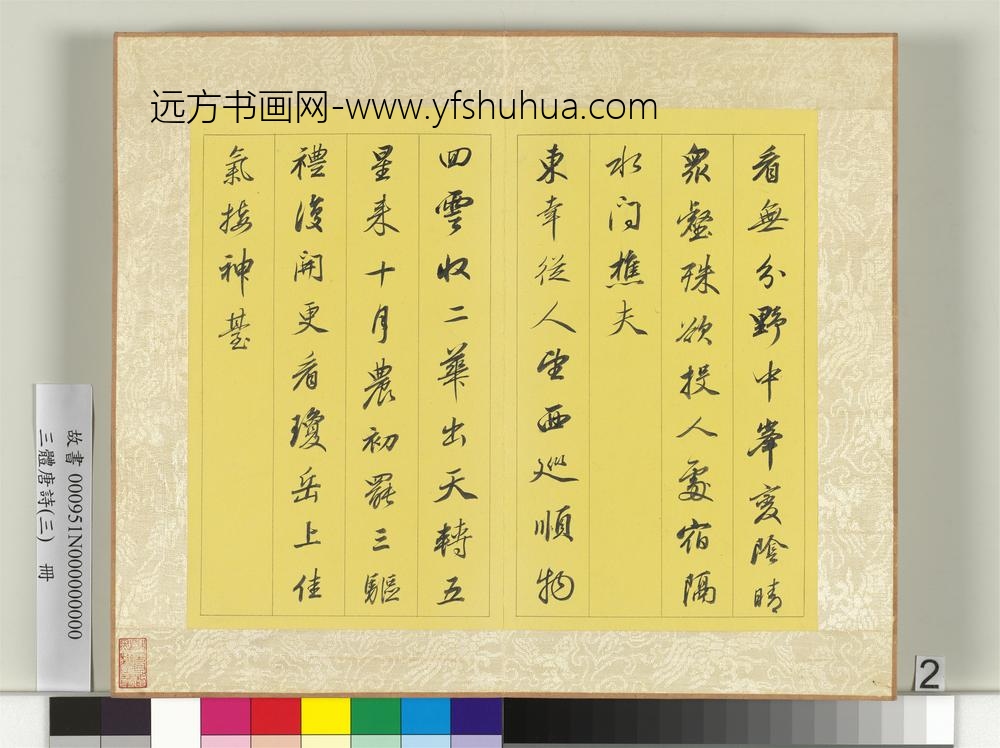 远方书画网-www.yfshuhua.com
看無分野中峯變陰晴
衆壑殊欲投人處宿隔
水问樵夫
東幸從人望西巡順物
回雲收二華出天轉五
星来十月農初罷三驅
禮復開更看瓊岳上佳
氣接神臺
故書 000951N000000000
三體唐詩(三) 冊
2